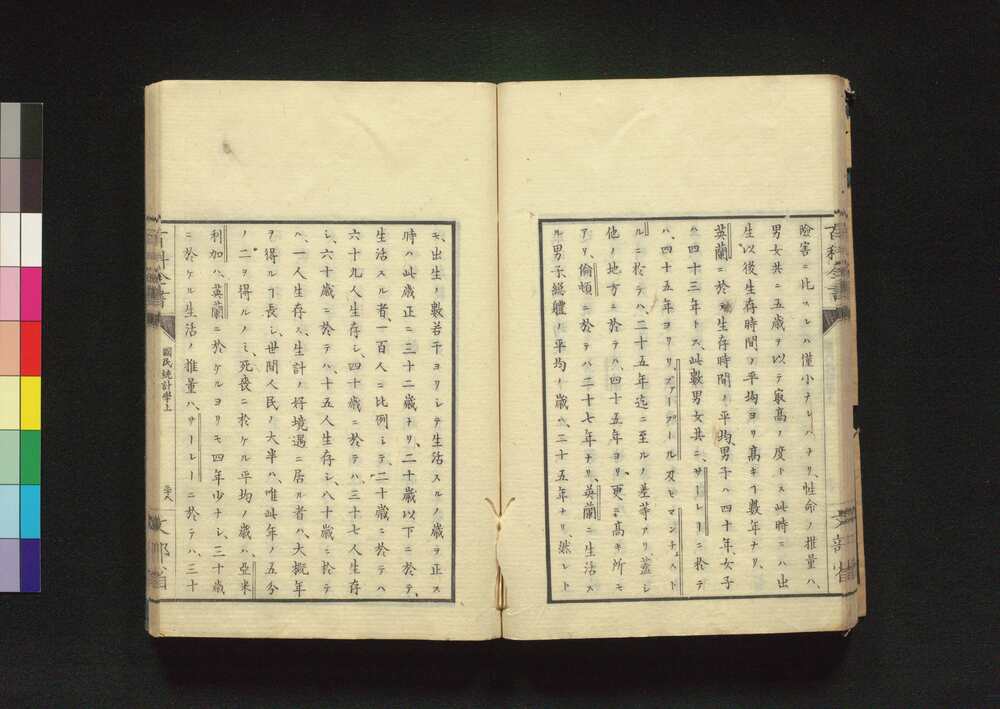 險害ニ比スレハ僅小ナレハナリ、性命ノ推量ハ、
男女共ニ五歳ヲ以テ最高ノ度トス此時ニハ出
生以後生存時間ノ平均ヨリ髙キヿ數年ナリ、
英蘭ニ於テ生存時間ノ平均、男子ハ四十年、女子
ハ四十三年トス、此數男女共ニ、サーレーニ於テ
ハ、四十五年ヨリ リブアープール及ヒマンチェスト
ルニ於テハ、二十五年迄ニ至ルノ差等アリ、蓋シ
他ノ地方ニ於テハ、四十五年ヨリ、更ニ髙キ所モ
アリ、倫頓ニ於テハ二十七年ナリ、英蘭ニ生活ス
ル男子總體ノ平均ノ歳ハ、二十五年ナリ、然レト
モ、出生ノ數若干ヨリシテ生活スルノ歳ヲ正ス
時ハ此歳正ニ三十二歳ナリ、二十歳以下ニ於テ、
生活スル者、一百人ニ比例シテ、二十歳ニ於テハ
六十九人生存シ、四十歳ニ於テハ三十七人生存
シ、六十歳ニ於テハ十五人生存シ、八十歳ニ於テ
ハ、一人生存ス、生計ノ好境遇ニ居ル者ハ、大概年
ヲ得ルヿ長シ、世間人民ノ大半ハ、唯此年ノ五分
ノ二ヲ得ルノミ、死喪ニ於ケル平均ノ歳ハ、亞米
利加ハ、英蘭ニ於ケルヨリモ四年少ナシ、三十歳
ニ於ケル生活ノ推量ハ、サーレーニ於テハ、三十
百科全書
國民統計學上
文部省
百科全書
文部省